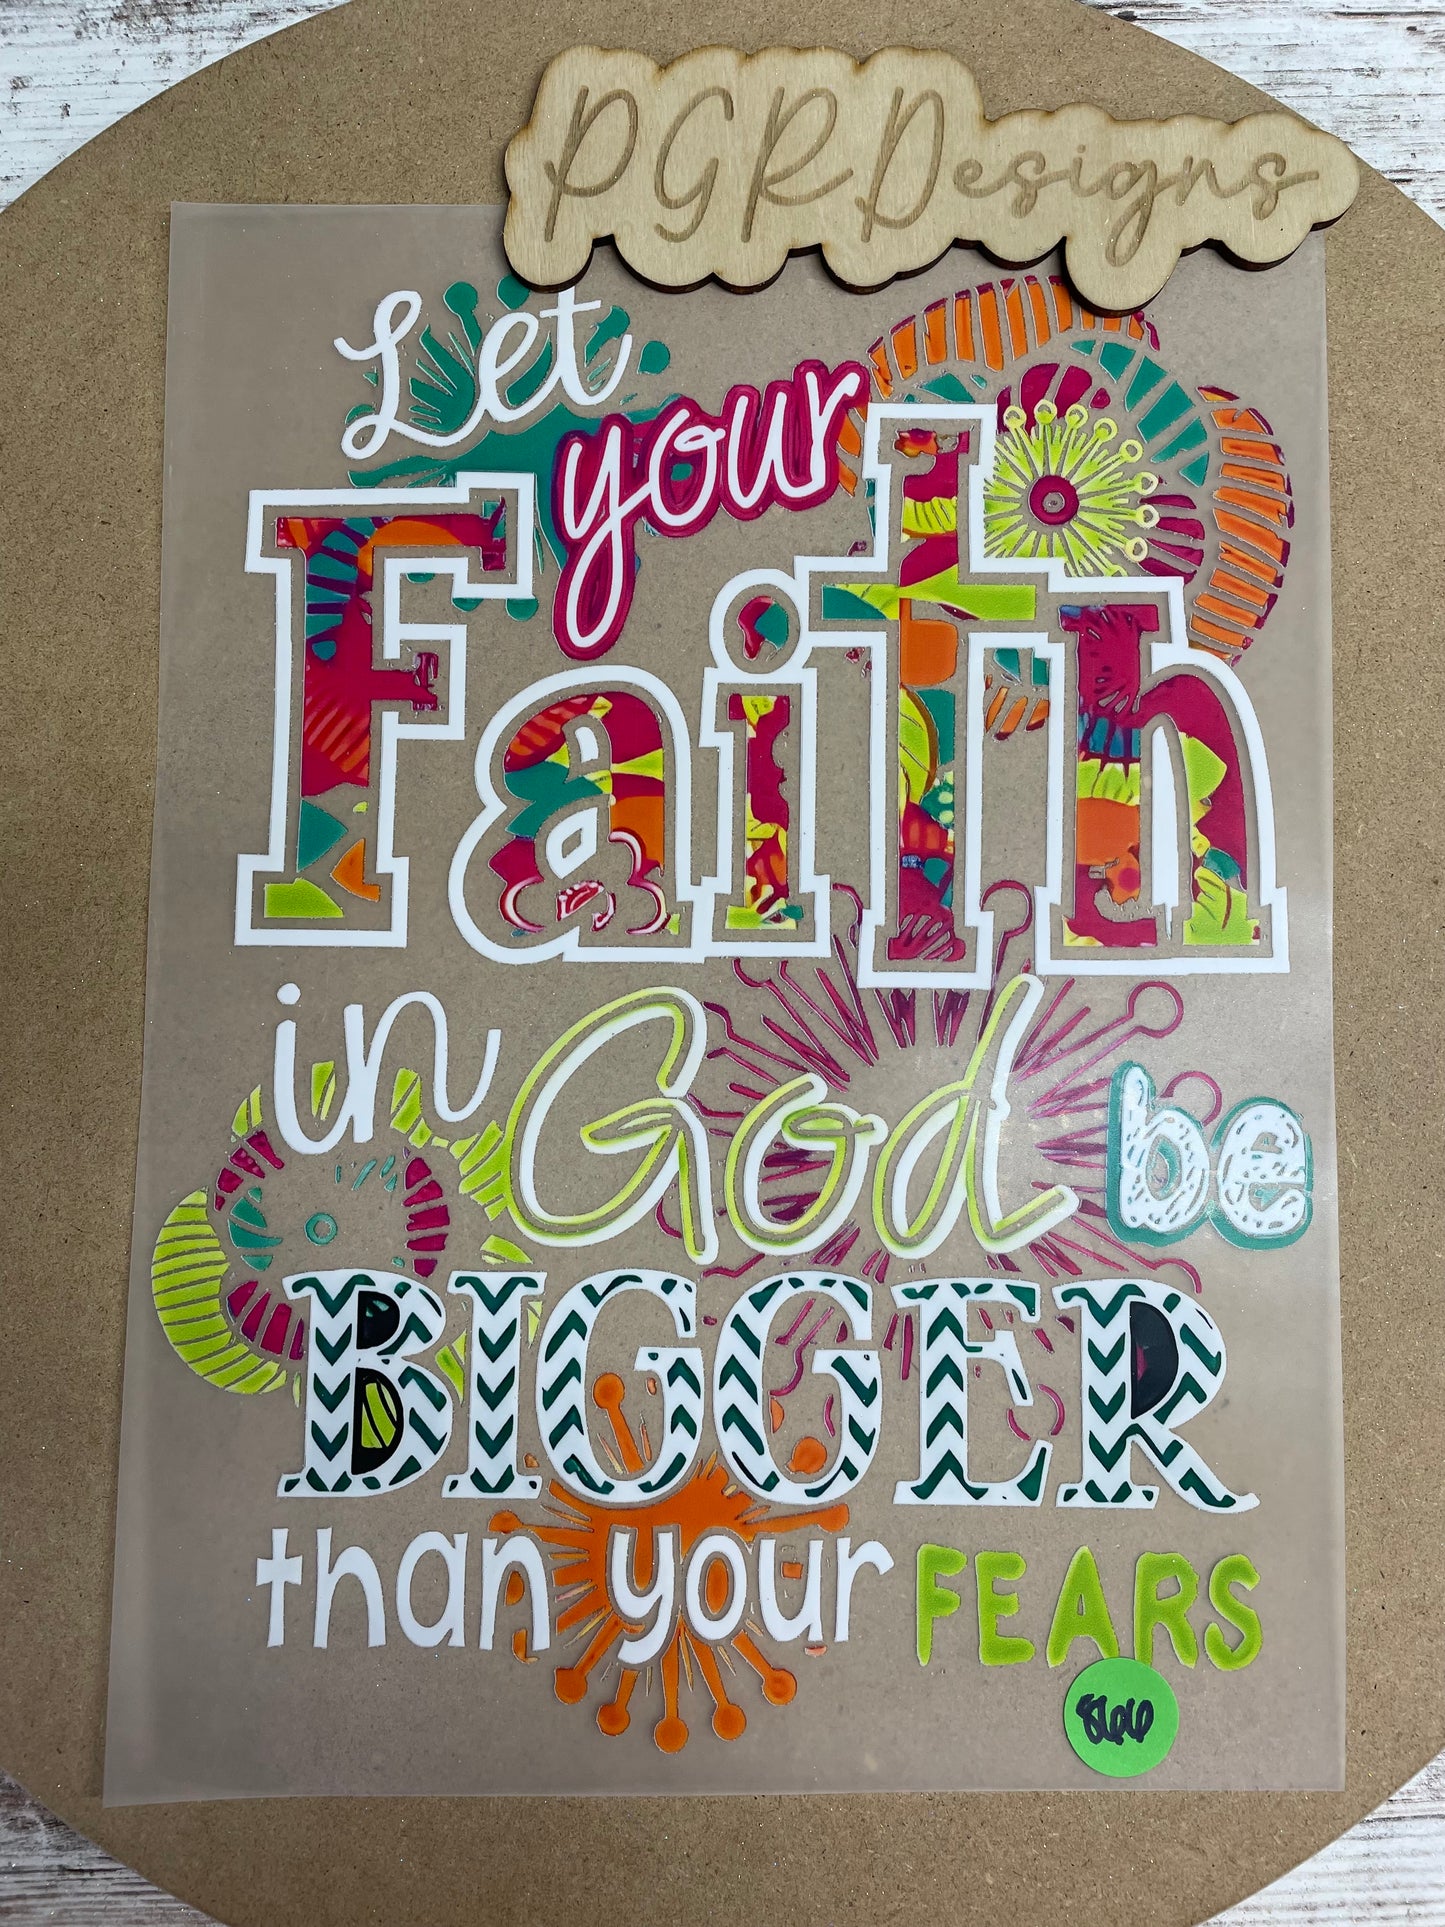 PGRDesigns
Let
your
Faith
in God be
BIGGER
than your FEARS
866